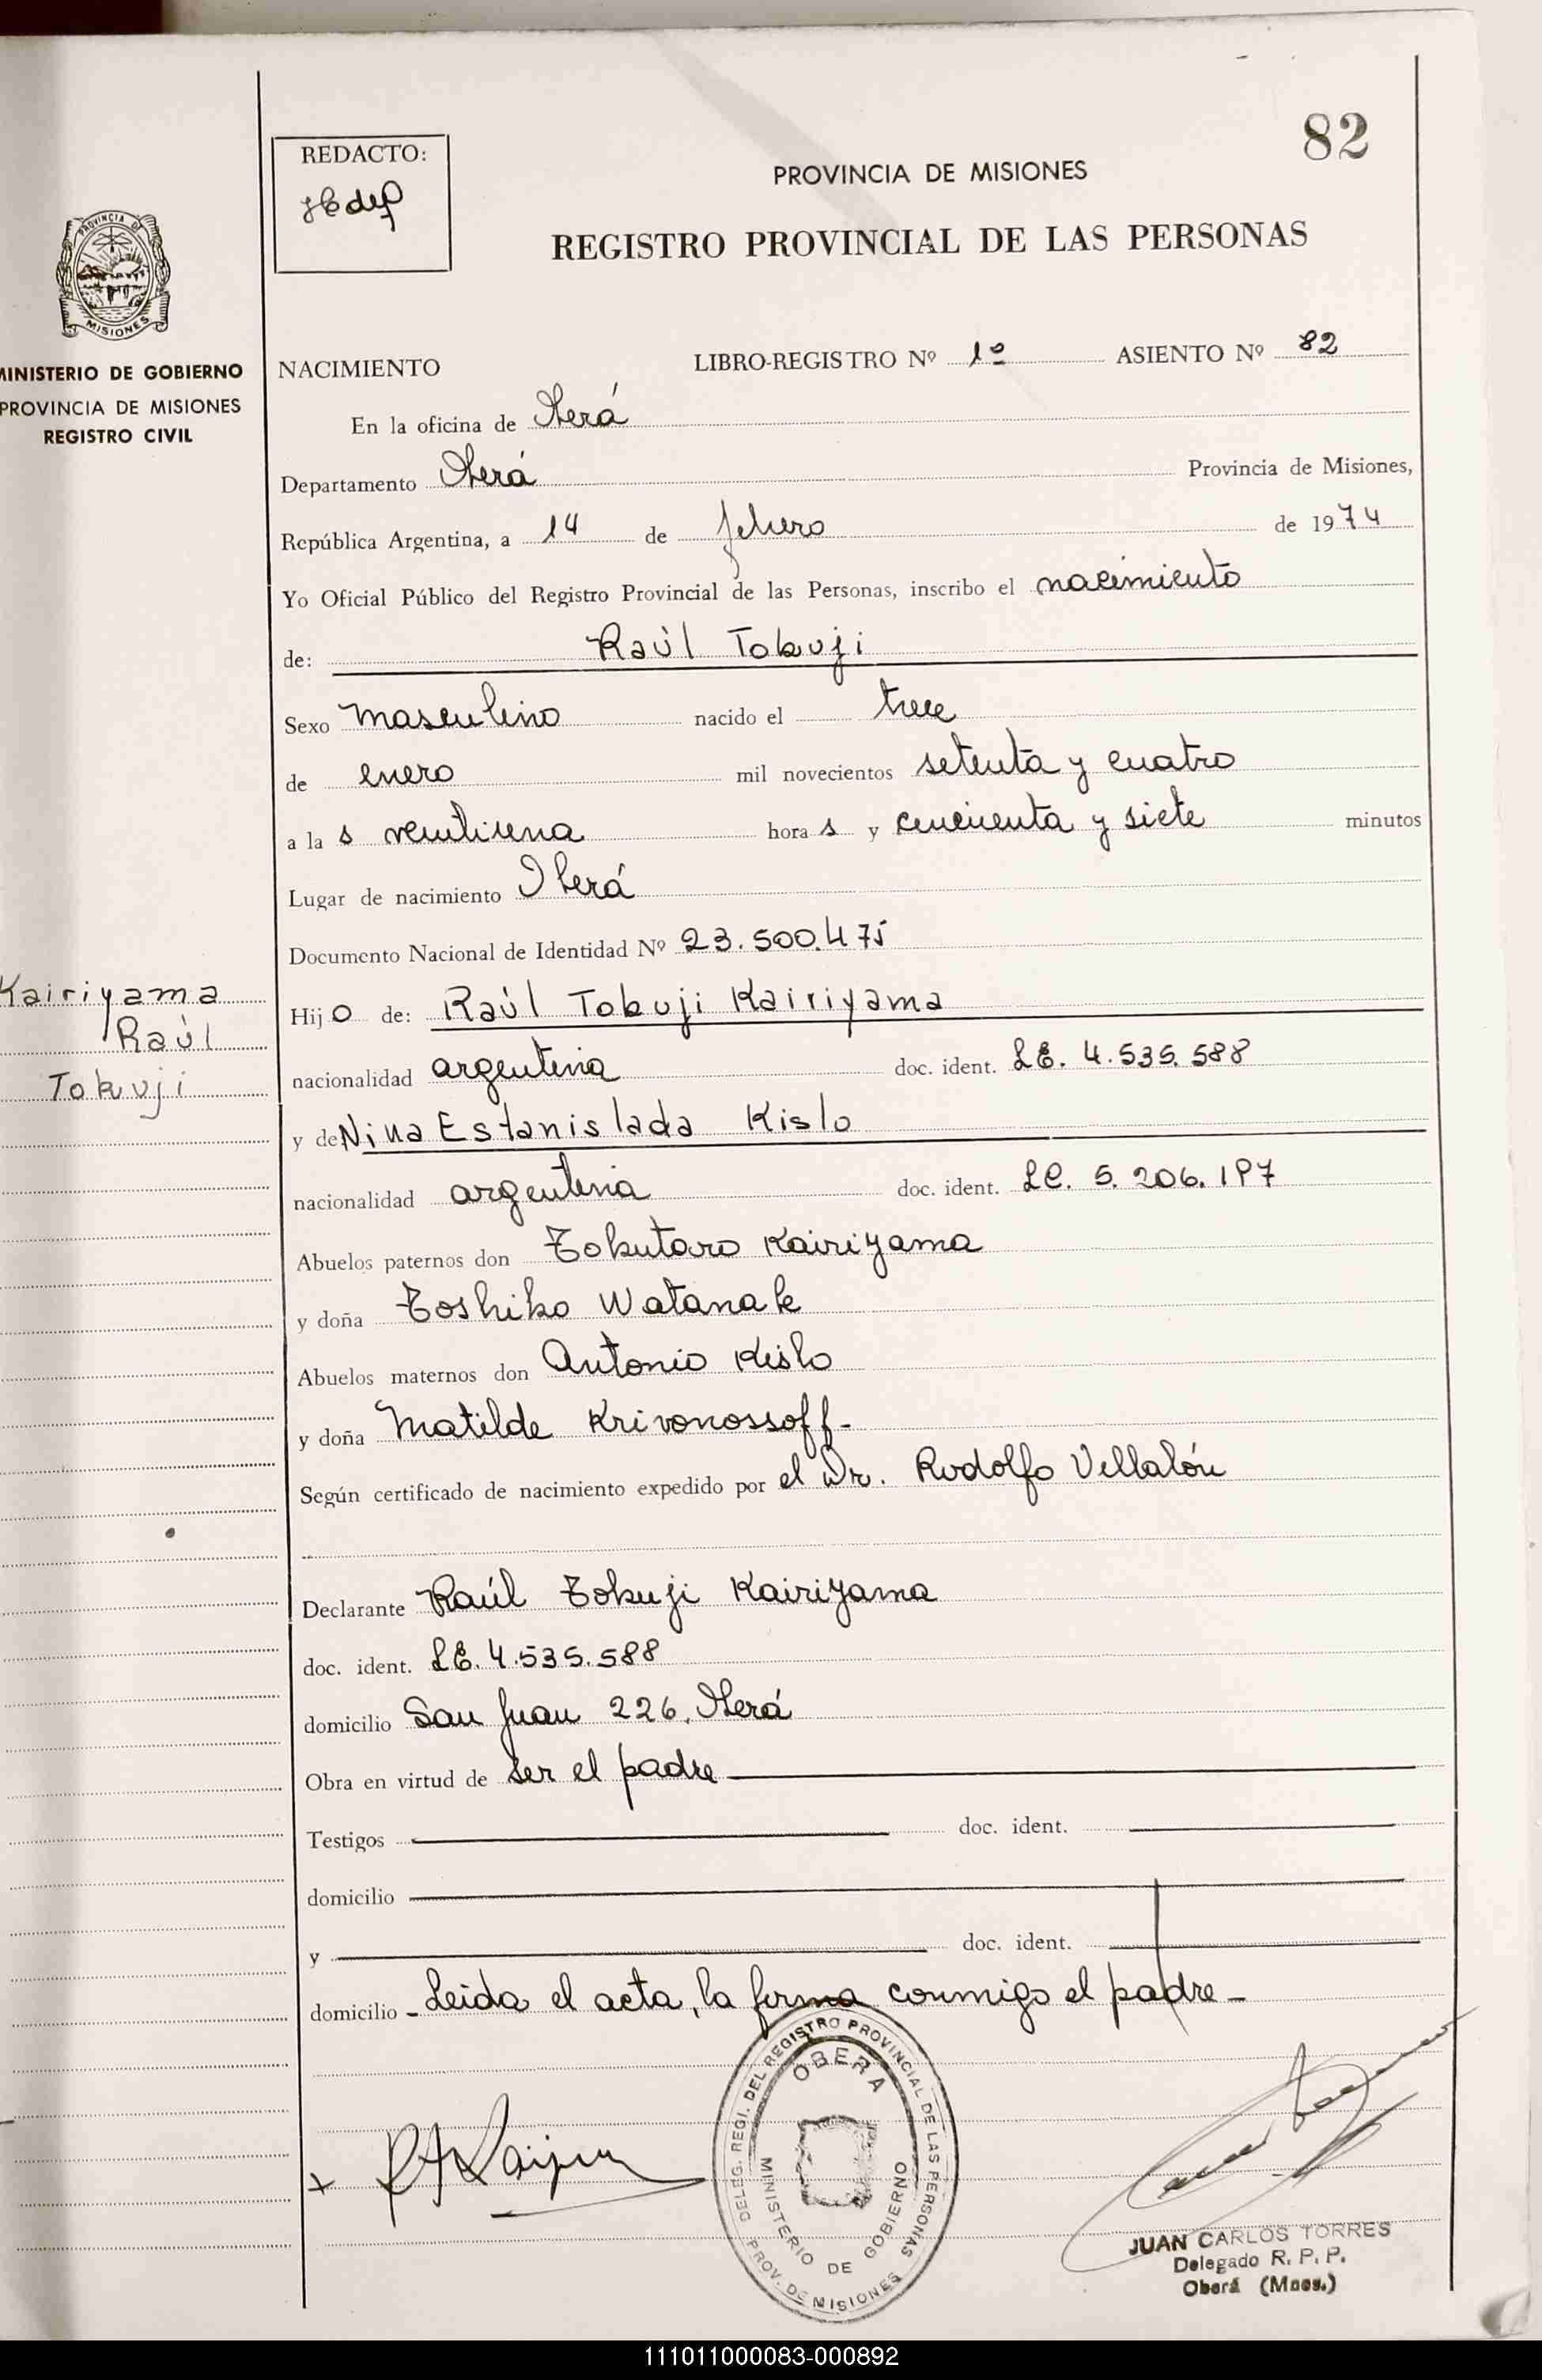 82
REDACTO:
PROVINCIA DE MISIONES
REGISTRO PROVINCIAL DE LAS PERSONAS
PROVINCIA DE
MISIONES
MINISTERIO DE GOBIERNO
PROVINCIA DE MISIONES
REGISTRO CIVIL
NACIMIENTO LIBRO-REGISTRO Nº 1º ASIENTO Nº 82
En la oficina de Oberá
Departamento Oberá Provincia de Misiones,
República Argentina, a 14 de febrero de 1974
Yo Oficial Público del Registro Provincial de las Personas, inscribo el nacimiento
de: Raúl Tokuji
Sexo masculino nacido el trece
de enero mil novecientos setenta y cuatro
a las veintiuna horas y cincuenta y siete minutos
Lugar de nacimiento Oberá
Documento Nacional de Identidad Nº 23.500.475
Kairiyama
Raúl
Tokuji
Hijo de: Raúl Tokuji Kairiyama
nacionalidad argentina doc. ident. LE. 4.535.588
y de Nina Estanislada Kislo
nacionalidad argentina doc. ident. LC. 5.206.197
Abuelos paternos don Tokutaro Kairiyama
y doña Toshiko Watanabe
Abuelos maternos don Antonio Kislo
y doña Matilde Krivonossoff-
Según certificado de nacimiento expedido por el Dr. Rodolfo Villalón
Declarante Raúl Tokuji Kairiyama
doc. ident. LE. 4.535.588
domicilio San Juan 226, Oberá
Obra en virtud de ser el padre
Testigos doc. ident.
domicilio
y doc. ident.
domicilio - Leida el acta, la firma conmigo el padre -
DELEG. REGI. DEL REGISTRO PROVINCIAL DE LAS PERSONAS
OBERA
MINISTERIO DE GOBIERNO
PROV. DE MISIONES
JUAN CARLOS TORRES
Delegado R. P. P.
Oberá (Mnes.)
111011000083-000892